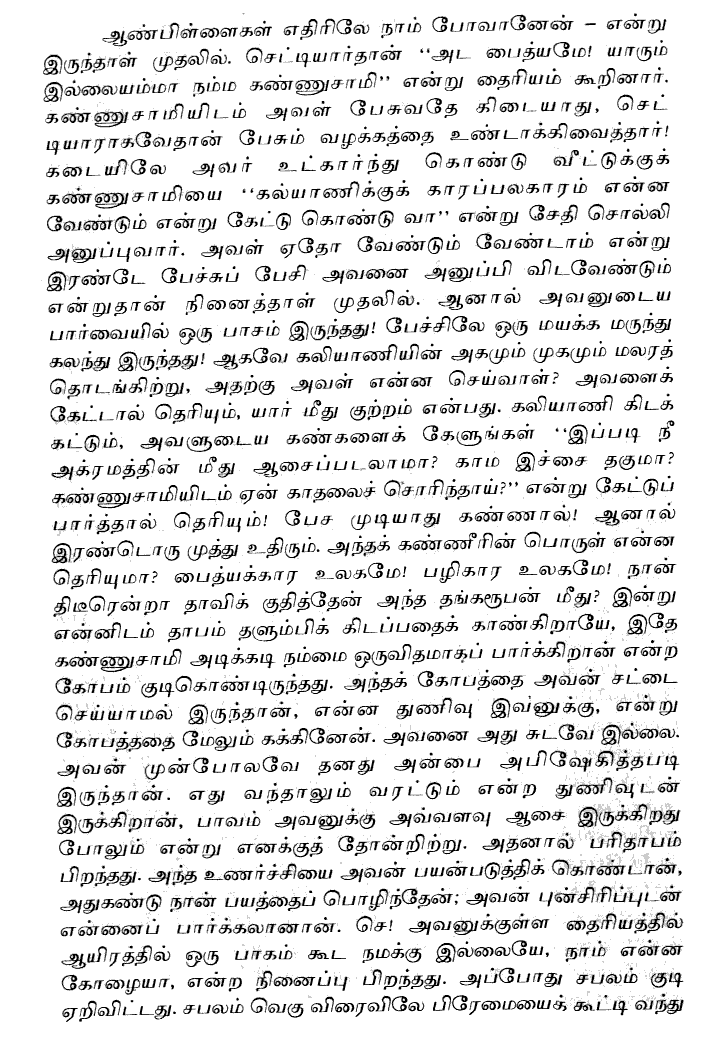 ஆண்பிள்ளைகள் எதிரிலே நாம் போவானேன் – என்று
இருந்தாள் முதலில். செட்டியார்தான் ‘‘அட பைத்யமே! யாரும்
இல்லையம்மா நம்ம கண்ணுசாமி’’ என்று தைரியம் கூறினார்.
கண்ணுசாமியிடம் அவள் பேசுவதே கிடையாது, செட்
டியாராகவேதான் பேசும் வழக்கத்தை உண்டாக்கிவைத்தார்!
கடையிலே அவர் உட்கார்ந்து கொண்டு வீட்டுக்குக்
கண்ணுசாமியை ‘‘கல்யாணிக்குக் காரப்பலகாரம் என்ன
வேண்டும் என்று கேட்டு கொண்டு வா’’ என்று சேதி சொல்லி
அனுப்புவார். அவள் ஏதோ வேண்டும் வேண்டாம் என்று
இரண்டே பேச்சுப் பேசி அவனை அனுப்பி விடவேண்டும்
என்றுதான் நினைத்தாள் முதலில். ஆனால் அவனுடைய
பார்வையில் ஒரு பாசம் இருந்தது! பேச்சிலே ஒரு மயக்க மருந்து
கலந்து இருந்தது! ஆகவே கலியாணியின் அகமும் முகமும் மலரத்
தொடங்கிற்று, அதற்கு அவள் என்ன செய்வாள்? அவளைக்
கேட்டால் தெரியும், யார் மீது குற்றம் என்பது. கலியாணி கிடக்
கட்டும், அவளுடைய கண்களைக் கேளுங்கள் ‘‘இப்படி நீ
அக்ரமத்தின் மீது ஆசைப்படலாமா? காம இச்சை தகுமா?
கண்ணுசாமியிடம் ஏன் காதலைச் சொரிந்தாய்?’’ என்று கேட்டுப்
பார்த்தால் தெரியும்! பேச முடியாது கண்ணால்! ஆனால்
இரண்டொரு முத்து உதிரும். அந்தக் கண்ணீரின் பொருள் என்ன
தெரியுமா? பைத்யக்கார உலகமே! பழிகார உலகமே! நான்
திடீரென்றா தாவிக் குதித்தேன் அந்த தங்கரூபன் மீது? இன்று
என்னிடம் தாபம் தளும்பிக் கிடப்பதைக் காண்கிறாயே, இதே
கண்ணுசாமி அடிக்கடி நம்மை ஒருவிதமாகப் பார்க்கிறான் என்ற
கோபம் குடிகொண்டிருந்தது. அந்தக் கோபத்தை அவன் சட்டை
செய்யாமல் இருந்தான், என்ன துணிவு இவனுக்கு, என்று
கோபத்ததை மேலும் கக்கினேன். அவனை அது சுடவே இல்லை.
அவன் முன்போலவே தனது அன்பை அபிஷேகித்தபடி
இருந்தான். எது வந்தாலும் வரட்டும் என்ற துணிவுடன்
இருக்கிறான், பாவம் அவனுக்கு அவ்வளவு ஆசை இருக்கிறது
போலும் என்று எனக்குத் தோன்றிற்று. அதனால் பரிதாபம்
பிறந்தது. அந்த உணர்ச்சியை அவன் பயன்படுத்திக் கொண்டான்,
அதுகண்டு நான் பயத்தைப் பொழிந்தேன்; அவன் புன்சிரிப்புடன்
என்னைப் பார்க்கலானான். செ! அவனுக்குள்ள தைரியத்தில்
ஆயிரத்தில் ஒரு பாகம் கூட நமக்கு இல்லையே, நாம் என்ன
கோழையா, என்ற நினைப்பு பிறந்தது. அப்போது சபலம் குடி
ஏறிவிட்டது. சபலம் வெகு விரைவிலே பிரேமையைக் கூட்டி வந்து